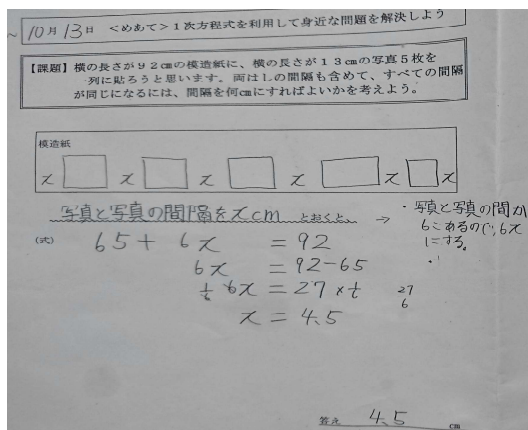 10月13日 <めあて>1次方程式を利用して身近な問題を解決しよう
【課題】横の長さが92cmの模造紙に、横の長さが13cmの写真5枚を
列に貼ろうと思います。両はしの間隔も含めて、すべての間隔
が同じになるには、間隔を何cmにすればよいかを考えよう。
模造紙
x x x x x x
写真と写真の間隔をxcm とおくと、 → ・写真と写真の間が
6こあるので、6x
にする。
(式) 65+6x =92
6x =92-65
1/6 6x =27×1/6
27
6
x =4.5
答え 4.5 cm